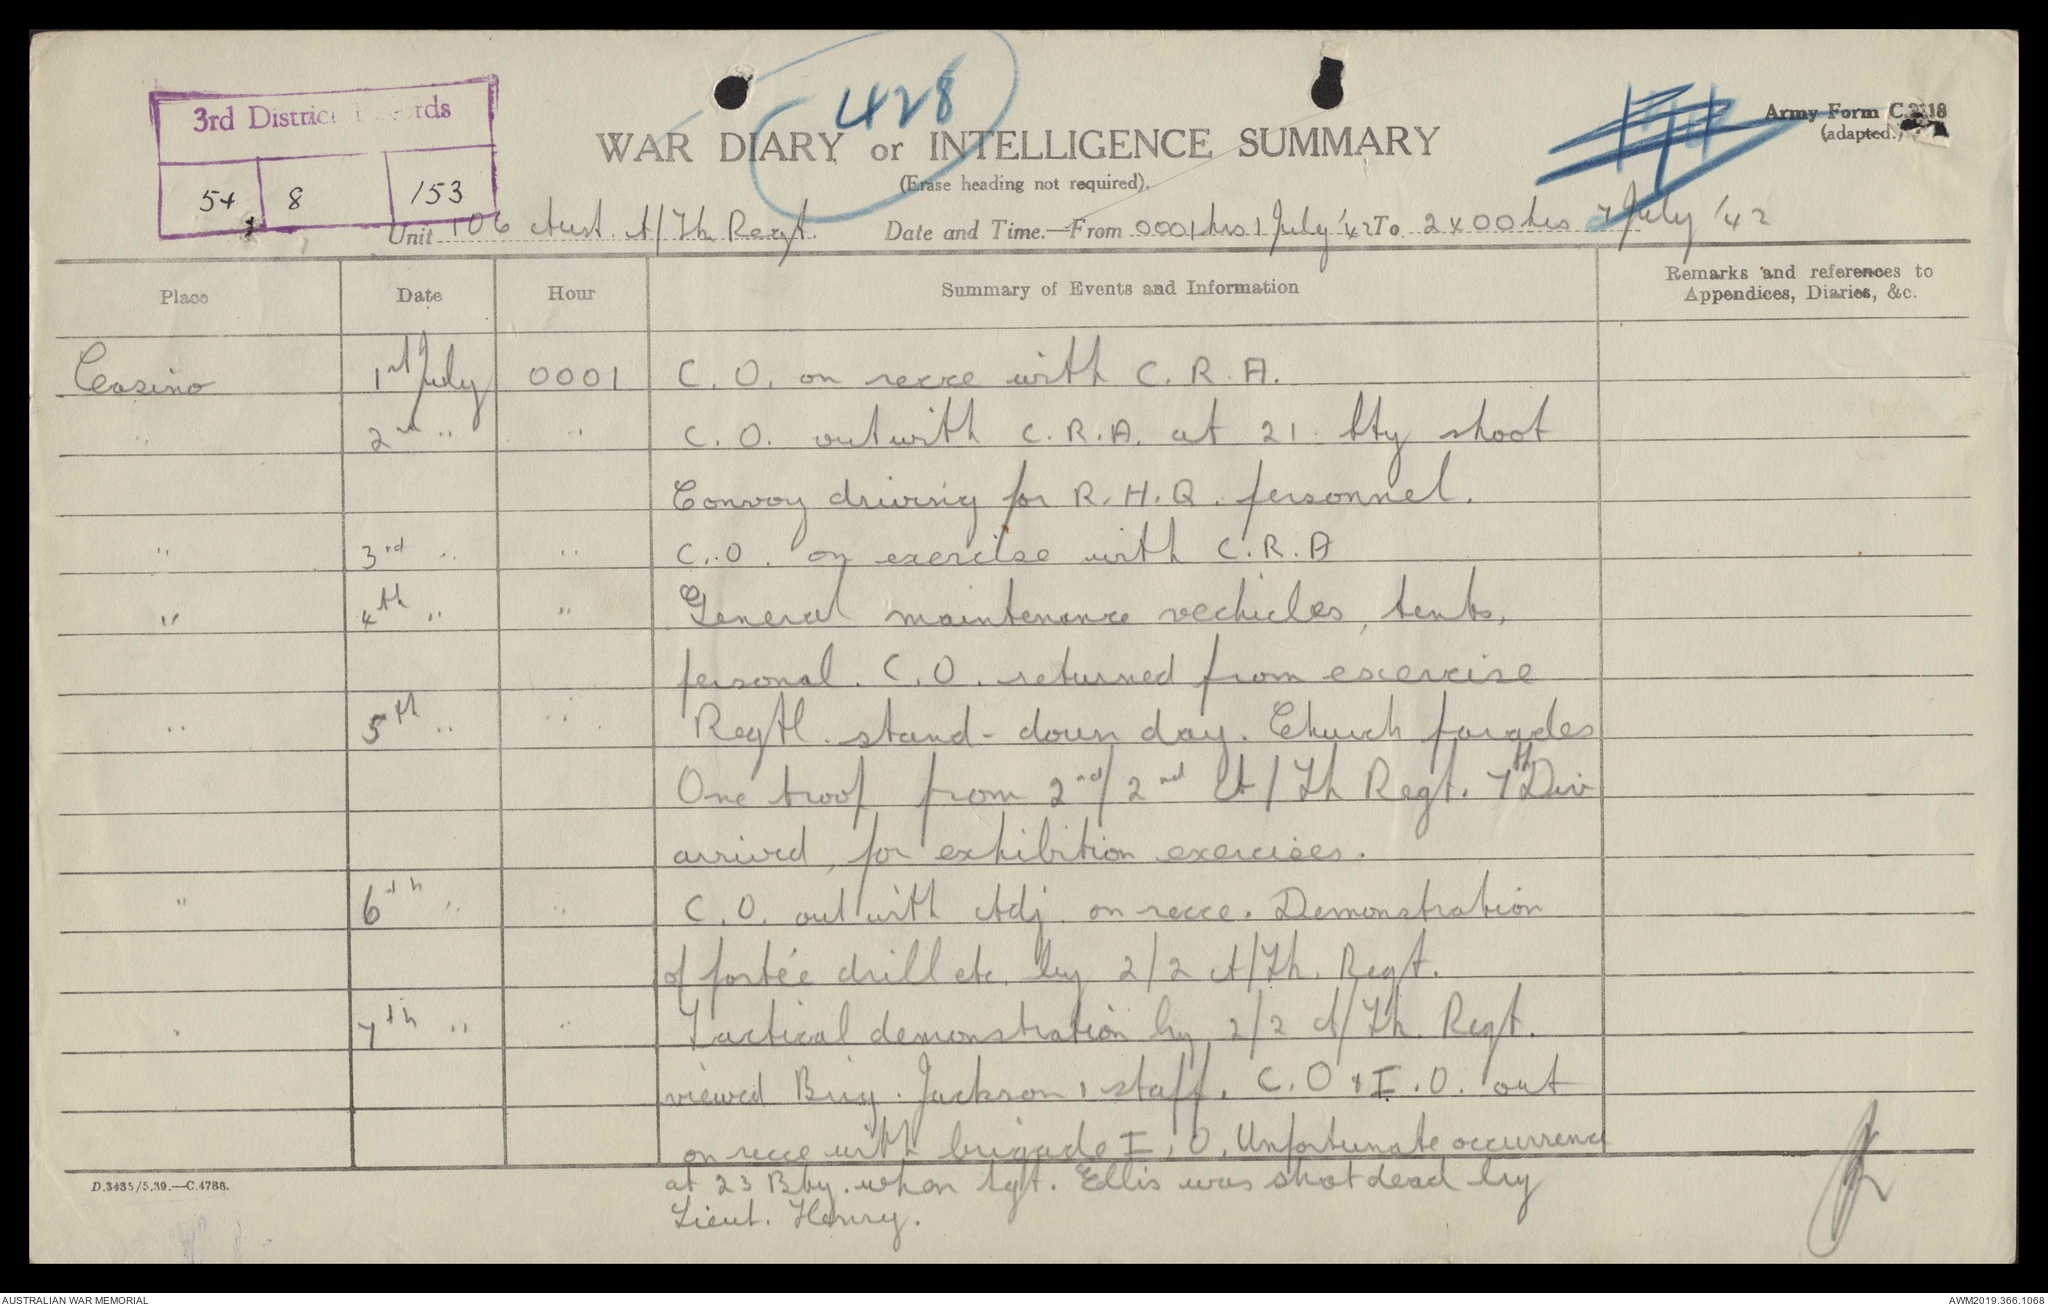 3rd District Records
54 8 153
428
WAR DIARY or INTELLIGENCE SUMMARY
(Erase heading not required).
Army Form C.2118
(adapted.)
Unit 106 Aust. A/Tk Regt. Date and Time.—From 0001 hrs 1 July '42 To 2400 hrs 7 July '42
Place Date Hour Summary of Events and Information Remarks and references to
Appendices, Diaries, &c.
Casino 1st July 0001 C. O. on recce with C. R. A.
" 2nd " " C. O. out with C.R.A. at 21 Bty shoot
Convoy driving for R.H.Q. personnel.
" 3rd " " C.O. on exercise with C.R.A
" 4th " " General maintenance vechicles, tents,
personal. C.O. returned from excercise
" 5th " " Regtl. stand-down day. Church parades
One troop from 2nd/2nd A/Tk Regt. 7th Div
arrived, for exhibition exercises.
" 6th " " C.O. out with Adj. on recce. Demonstration
of portée drill etc. by 2/2 A/Tk. Regt.
" 7th " " Tactical demonstration by 2/2 A/Tk. Regt.
viewed Brig. Jackson & staff. C.O & I.O. out
on recce with brigade I.O. Unfortunate occurrence
at 23 Bty. when Sgt. Ellis was shot dead by
Lieut. Henry.
D.3485/5.39.—C.4786.
AUSTRALIAN WAR MEMORIAL
AWM2019.366.1068